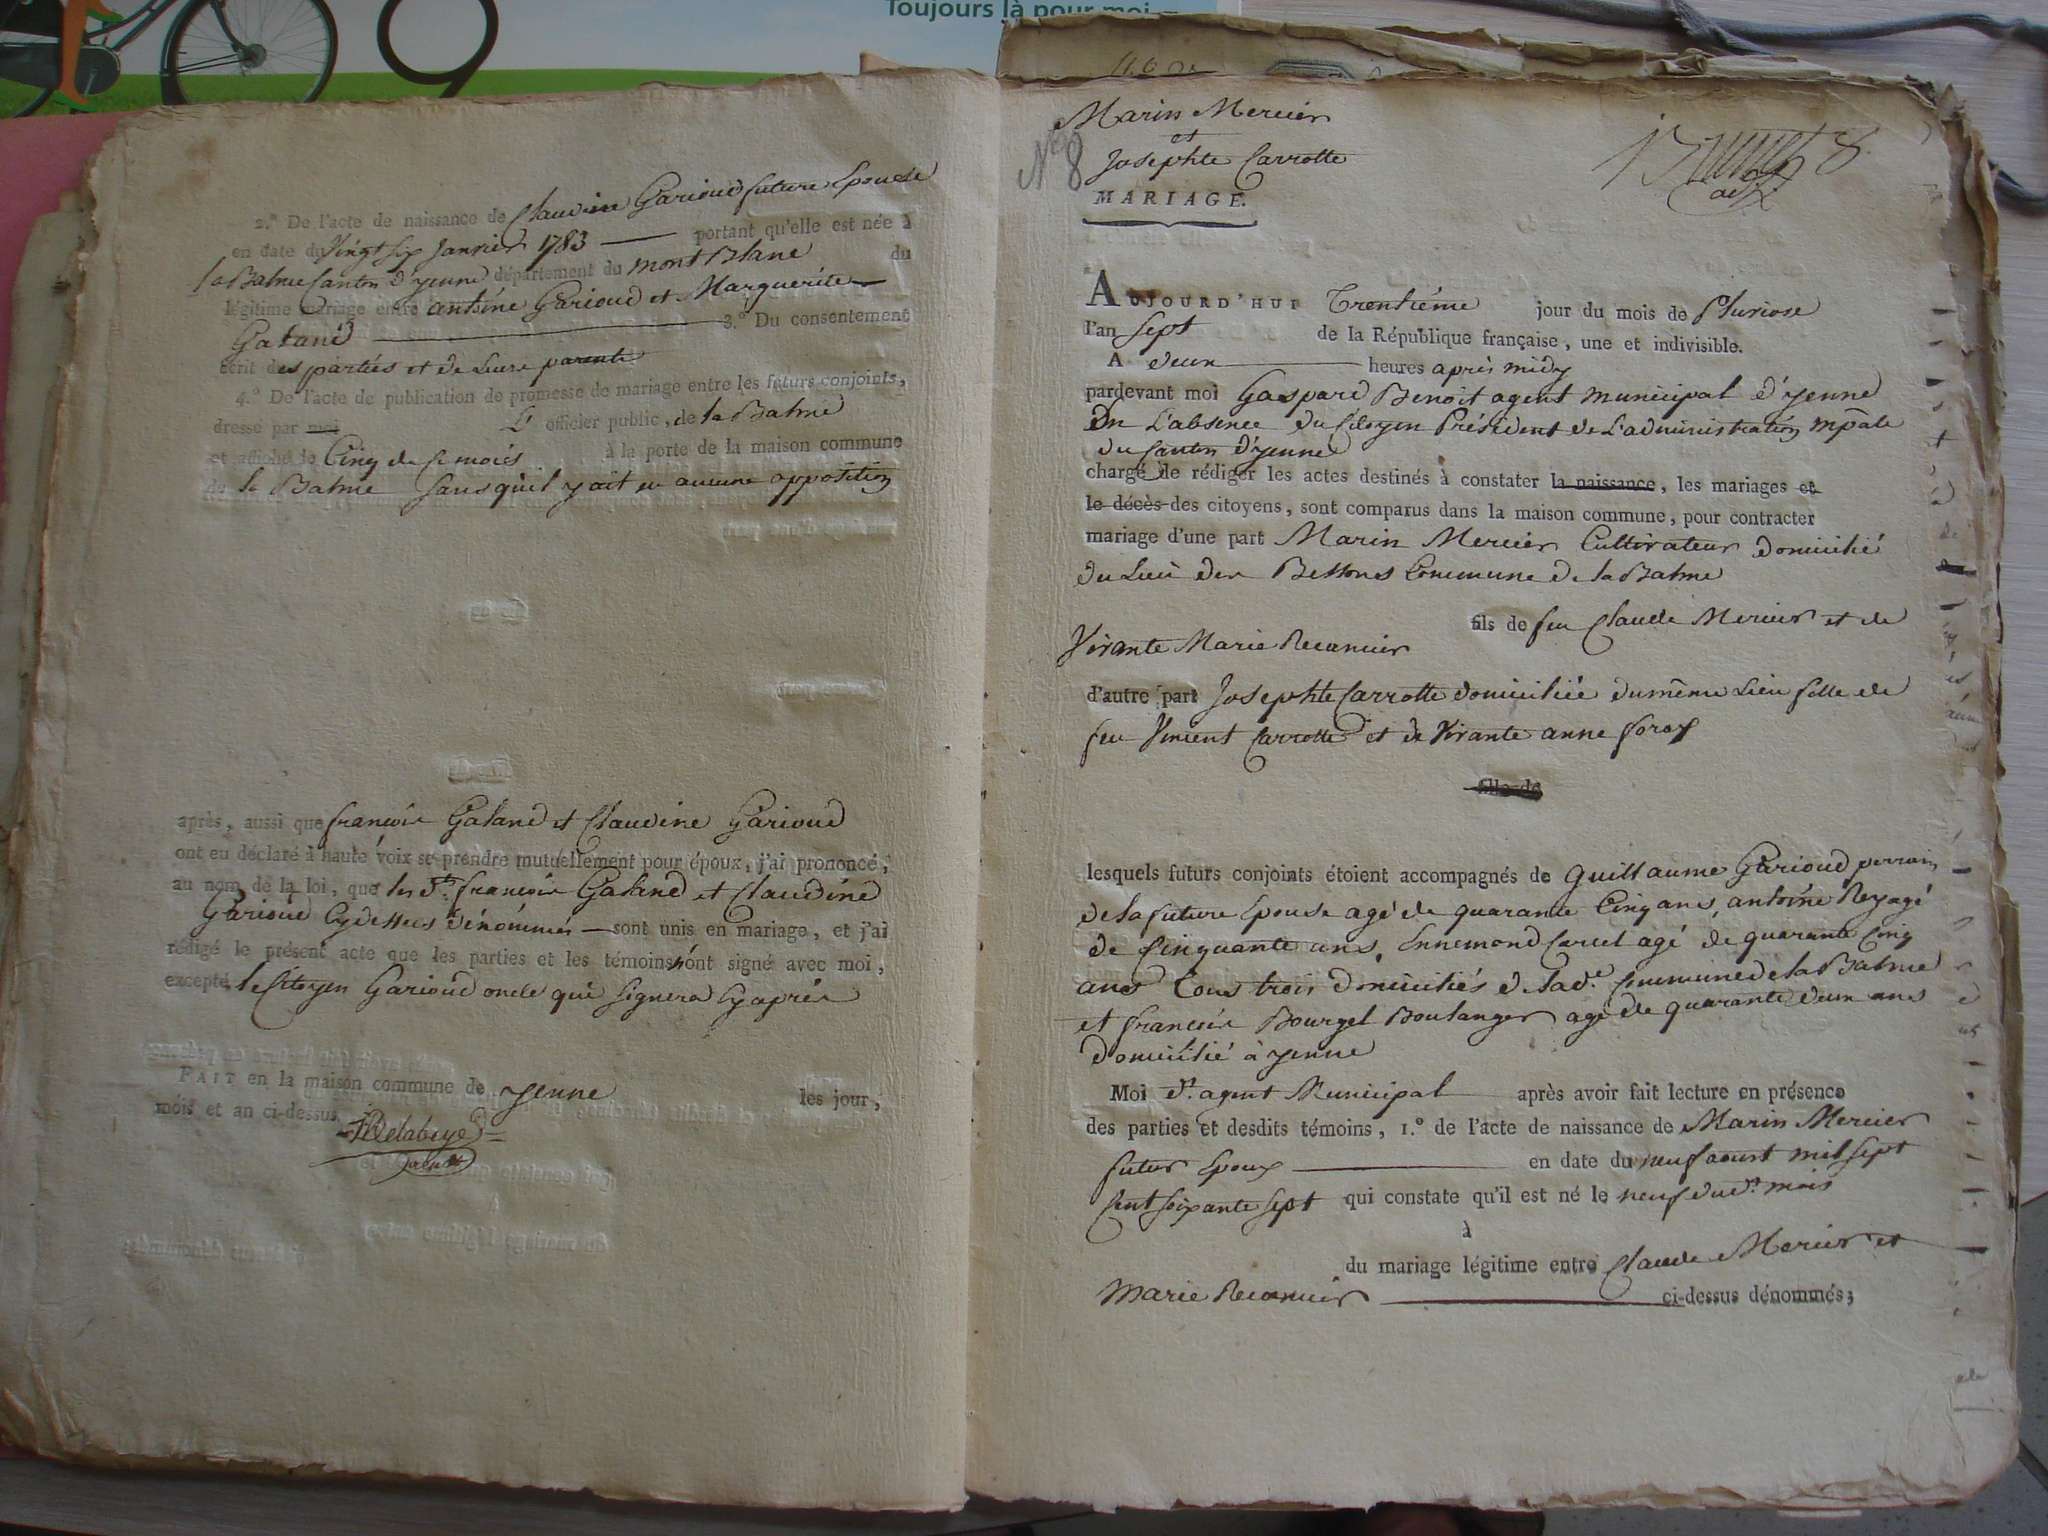 Toujours là pour moi
2.° De l'acte de naissance de Claudine Garioud future Epouse
en date du Vingt six Janvier 1783 portant qu'elle est née à
la Balme Canton d'yenne département du mont Blanc du
légitime mariage entre antoine Garioud et Marguerite
Galand 3.° Du consentement
écrit des parties et de Leurs parents
4.° De l'acte de publication de promesse de mariage entre les futurs conjoints,
dressé par moi L' officier public, de la Balme
et affiché le Cinq de ce mois à la porte de la maison commune
de la Balme sans qu'il y ait eu aucune opposition
après, aussi que françois Galand et Claudine Garioud
ont eu déclaré à haute voix se prendre mutuellement pour époux, j'ai prononcé,
au nom de la loi, que les dts françois Galand et Claudine
Garioud Cy dessus dénommés sont unis en mariage, et j'ai
rédigé le présent acte que les parties et les témoins n'ont signé avec moi,
excepté le Citoyen Garioud oncle qui signera Cy après
FAIT en la maison commune de yenne les jour,
mois et an ci-dessus.
Marin Mercier
et
Josephte Carrotte
N° 8
MARIAGE.
8
AUJOURD'HUI Trentième jour du mois de Pluviose
l'an Sept de la République française, une et indivisible.
A deux heures après midy
pardevant moi Gaspard Benoit agent municipal d'yenne
En L'absence du Citoyen Président de L'administration mpale
du Canton d'yenne
chargé de rédiger les actes destinés à constater la naissance, les mariages et
le décès des citoyens, sont comparus dans la maison commune, pour contracter
mariage d'une part Marin Mercier Cultivateur domicilié
du Lieu des Bessons Commune de la Balme
fils de feu Claude Mercier et de
Vivante Marie Recamier
d'autre part Josephte Carrotte domiciliée du même Lieu fille de
feu Vincent Carrotte et de Vivante anne foray
fille de
lesquels futurs conjoints étoient accompagnés de Guillaume Garioud perrain
de la future Epouse agé de quarante Cinq ans, antoine Rey agé
de Cinquante ans, Ennemond Carcel agé de quarante Cinq
ans Tous trois domiciliés de lade Commune de la Balme
et françois Bourgel Boulanger agé de quarante deux ans
domicilié à yenne
Moi dt agent Municipal après avoir fait lecture en présence
des parties et desdits témoins, 1.° de l'acte de naissance de Marin Mercier
futur Epoux en date du neuf aoust mil sept
Cent soixante sept qui constate qu'il est né le neuf dudt mois
à
du mariage légitime entre Claude Mercier et
Marie Recamier ci-dessus dénommés;